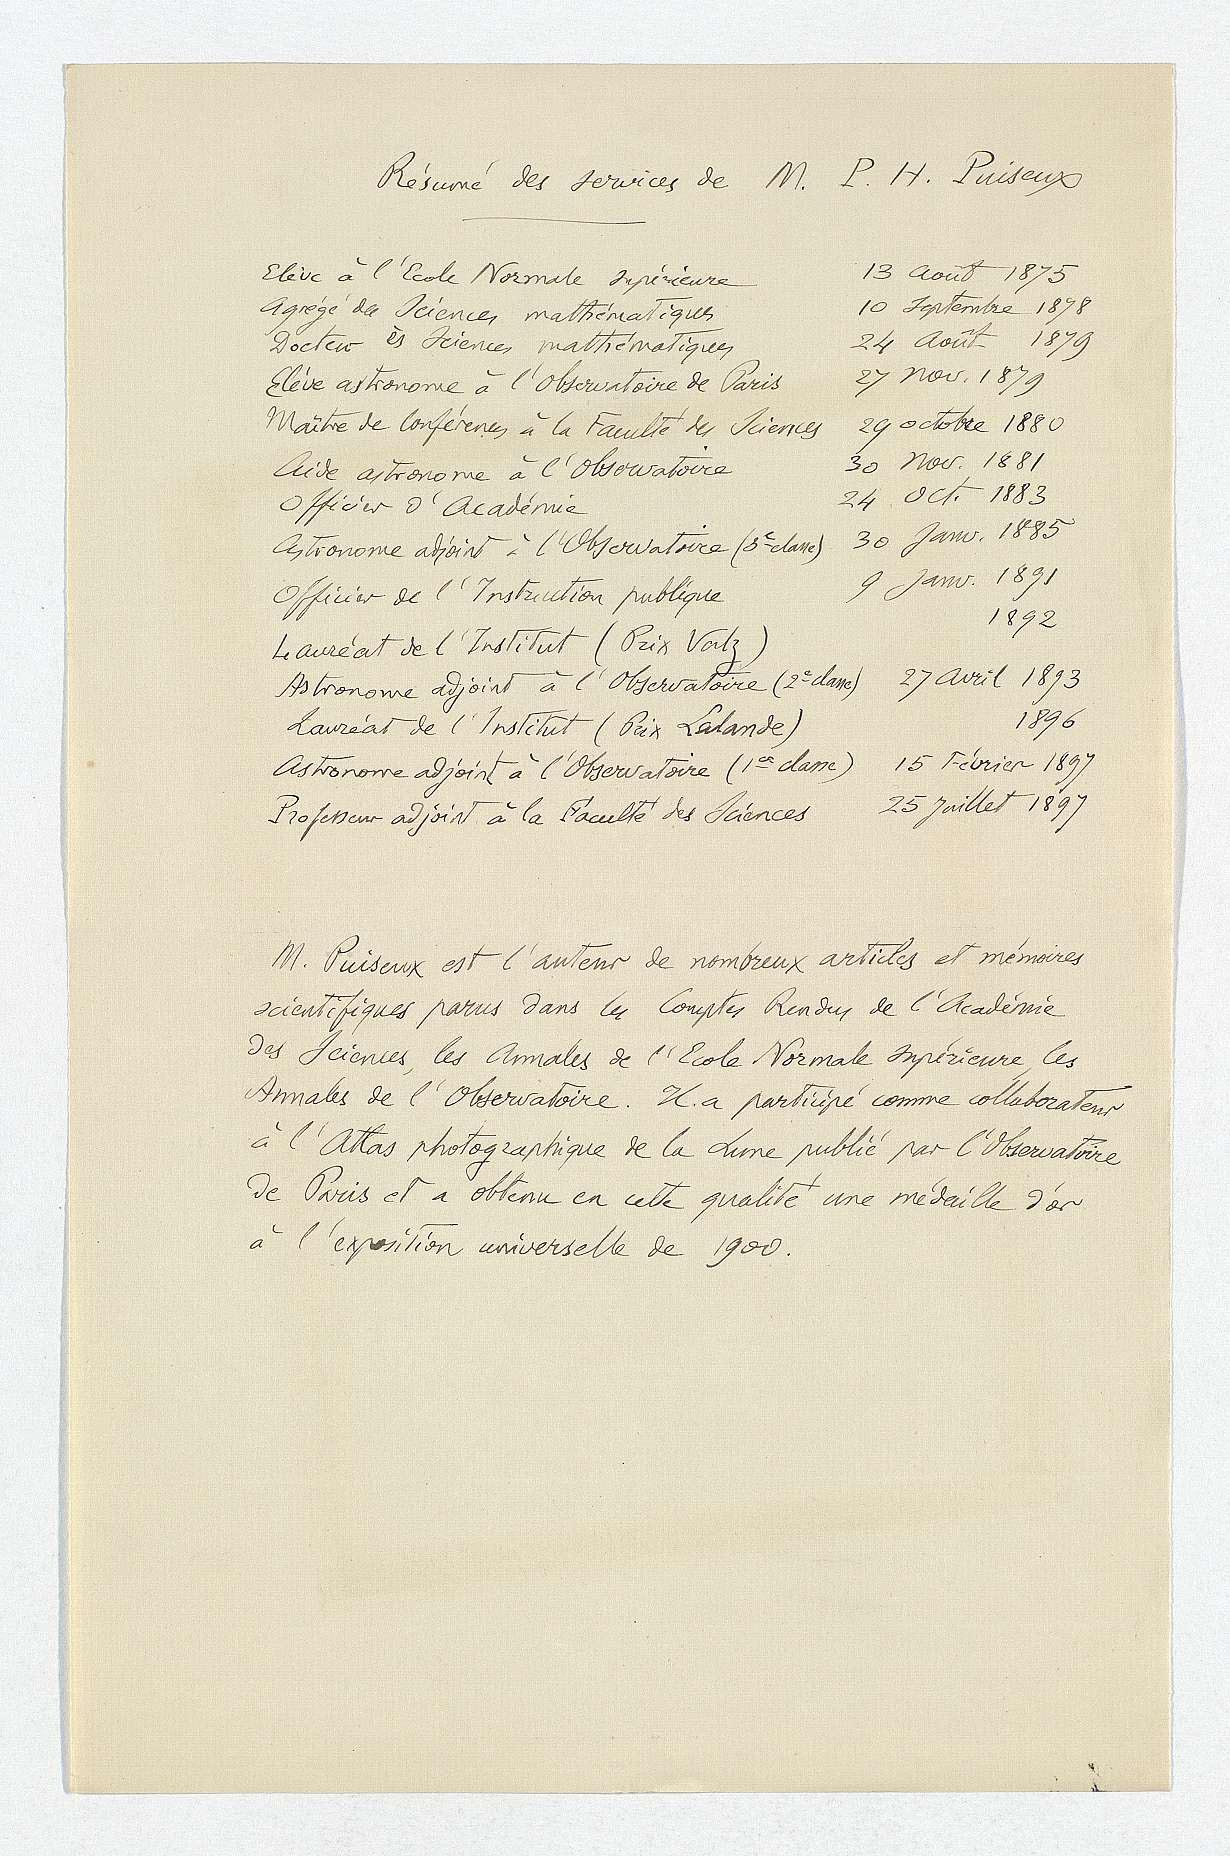 Résumé des services de M. P. H. Puiseux
Elève à l'Ecole Normale supérieure 13 août 1875
Agrégé des Sciences mathématiques 10 septembre 1878
Docteur ès Sciences mathématiques 24 Août 1879
Elève astronome à l'Observatoire de Paris 27 nov. 1879
Maître de Conférences à la Faculté des Sciences 29 octobre 1880
Aide astronome à l'Observatoire 30 nov. 1881
Officier d'Académie 24 oct. 1883
Astronome adjoint à l'Observatoire (3e classe) 30 Janv. 1885
Officier de l'Instruction publique 9 Janv. 1891
Lauréat de l'Institut (Prix Valz) 1892
Astronome adjoint à l'Observatoire (2e classe) 27 Avril 1893
Lauréat de l'Institut (Prix Lalande) 1896
Astronome adjoint à l'Observatoire (1ere classe) 15 Février 1897
Professeur adjoint à la Faculté des Sciences 25 Juillet 1897
M. Puiseux est l'auteur de nombreux articles et mémoires
scientifiques parus dans les Comptes Rendus de l'Académie
des Sciences, les Annales de l'Ecole Normale supérieure, les
Annales de l'Observatoire. Il a participé comme collaborateur
à l'Atlas photographique de la Lune publié par l'Observatoire
de Paris et a obtenu en cette qualité une médaille d'or
à l'exposition universelle de 1900.